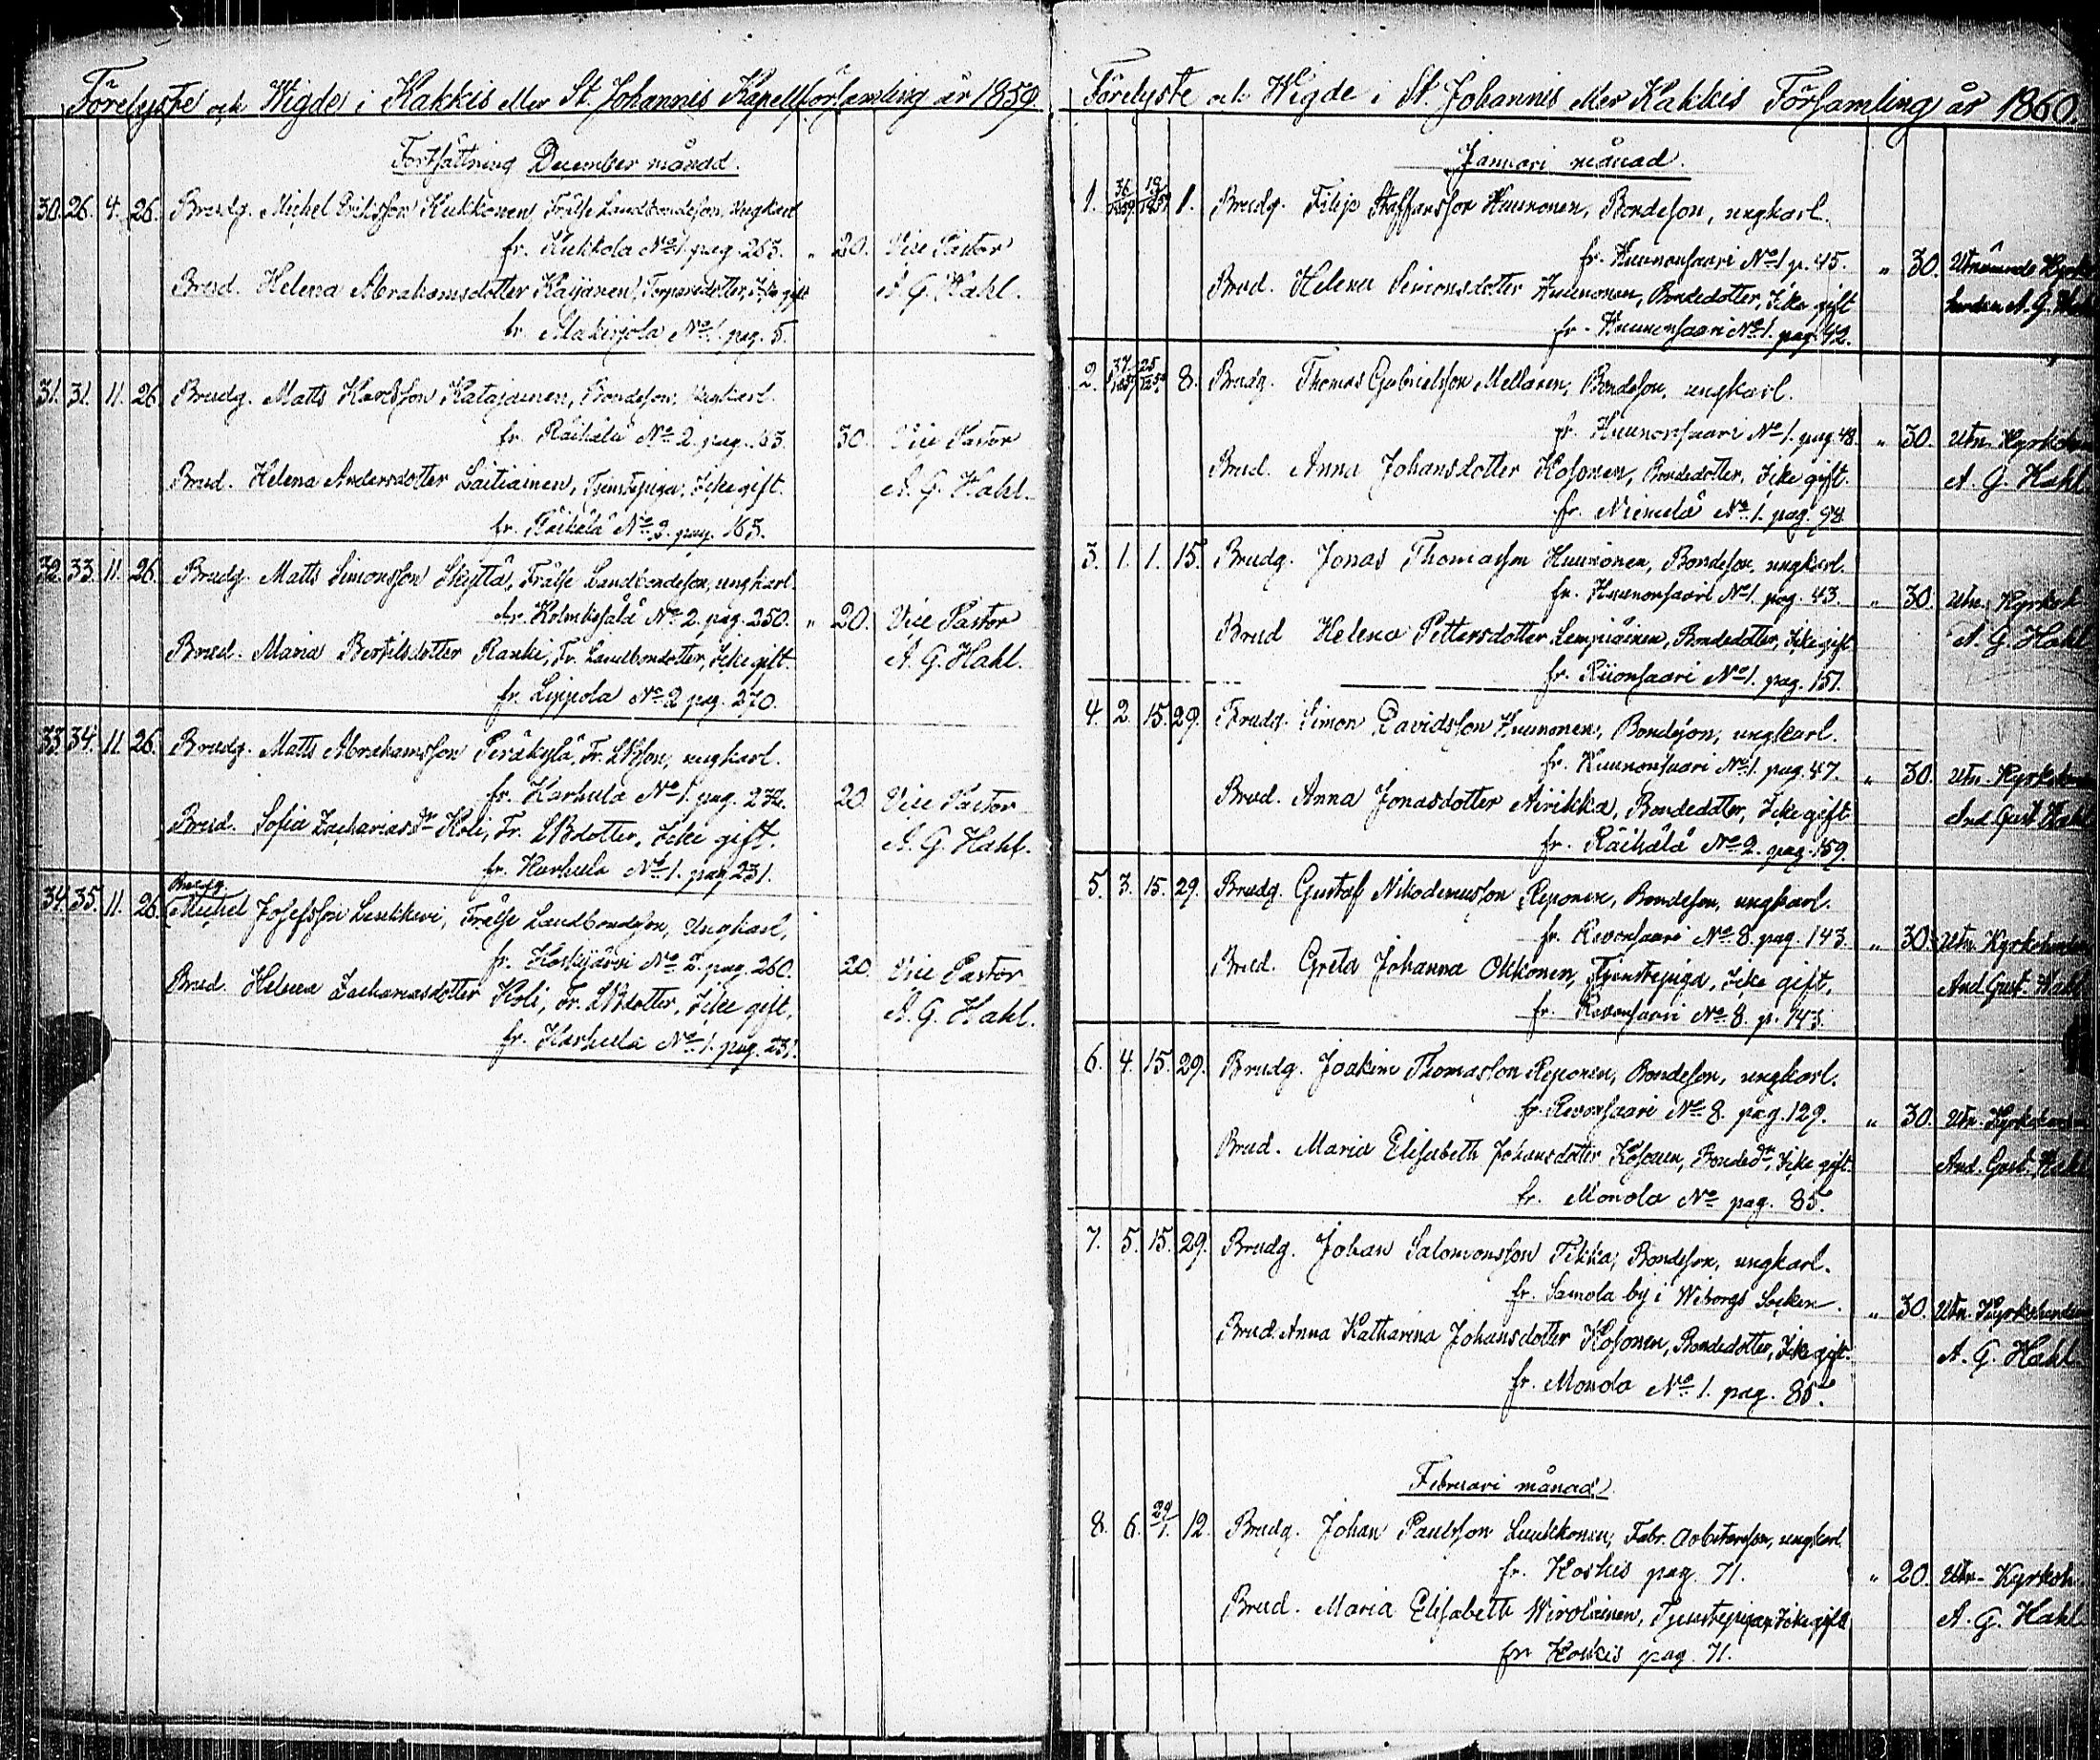 Förelyste och Wigde i Kakkis eller St. Johannis Kapellförsamling år 1859
Fortsättning December månad.
30. 26. 4. 26. Brudg. Michel Eriksson Kukkonen Frälse Landbondeson, Ungkarl
fr. Kukkola No 1. pag. 263. " 20. Vice Pastor
Brud. Helena Abrahamsdotter Käyänen, Torparedotter, Icke gift A. G. Hahl.
fr. Makirjola No 1. pag. 5.
31. 31. 11. 26. Brudg. Matts Karlsson Katajainen, Bondeson, Ungkarl.
fr. Räihälä No 2. pag. 30. Vice Pastor
Brud. Helena Andersdotter Laitiainen, Tjenstepiga, Icke gift. A. G. Hahl.
fr. Räihälä No pag. 163.
32. 33. 11. 26. Brudg. Matts Simonsson Skyttä, Frälse Landbondeson, ungkarl.
fr. Kolmikesälä No 2. pag. 250. " 20. Vice Pastor
Brud. Maria Bertilsdotter Ranki, Fr. Landbondotter, Icke gift. A. G. Hahl.
fr. Lippola No 2 pag. 270.
33. 34. 11. 26. Brudg. Matts Abrahamsson Peräkylä, Fr. LBson, ungkarl.
fr. Karhula No 1. pag. 232. 20. Vice Pastor
Brud. Sofia Zachariasdr Koli, Fr. LBdotter, Icke gift. A. G. Hahl.
fr. Karhula No 1. pag 231.
Brudg.
34. 35. 11. 26. Michel Josefsson Leukkeri, Frälse Landbondeson, Ungkarl,
fr. Koskijärvi No 2. pag. 260. 20. Vice Pastor
Brud. Helena Zachariasdotter Koli, Fr. LBdotter, Icke gift, A. G. Hahl.
fr. Karhula No 1. pag. 231.
Förelyste och Wigde i St. Johannis eller Kakkis Församling år 1860.
Januari månad.
1. 36/1859 18/1859 1. Brudg. Filip Staffansson Huunonen, Bondeson, ungkarl.
fr. Huunonsaari No 1 p. 45. " 30. Utnämnde Kyrko
Brud. Helena Simonsdotter Huunonen, Bondedotter, Icke gift herden A. G. Hahl
fr. Huunonsaari No 1. pag. 42.
2. 37/1859 25/1859 8. Brudg. Thomas Gabrielsson Mellanen, Bondeson, ungkarl.
fr. Huunonsaari No 1. pag. 48. " 30. Utn. Kyrkoh
Brud. Anna Johansdotter Kosonen, Bondedotter, Icke gift. A. G. Hahl
fr. Niemelä No 1. pag. 98
3. 1. 1. 15. Brudg. Jonas Thomasson Huunonen, Bondeson, ungkarl.
fr. Huunonsaari No 1. pag. 43. " 30. Utn. Kyrkoh
Brud Helena Pettersdotter Lempiäinen, Bondedotter, Icke gift A. G. Hahl
fr. Kiionsaari No 1. pag. 151.
4. 2. 15. 29. Brudg. Simon Davidsson Huunonen, Bondeson, ungkarl.
fr. Huunonsaari No 1. pag. 47. " 30. Utn. Kyrkoh
Brud. Anna Jonasdotter Airikka, Bondedotter, Icke gift And. Gust. Hahl
fr. Räihälä No 2. pag. 159
5. 3. 15. 29. Brudg. Gustaf Nikodemusson Reponen, Bondeson, ungkarl.
fr. Revonsaari No 8. pag. 143. " 30. Utn. Kyrkoherden
Brud. Greta Johanna Okkonen, Tjenstepiga, Icke gift, And. Gust. Hahl
fr. Revonsaari No 8. p. 143.
6. 4. 15. 29. Brudg. Joakim Thomasson Reponen, Bondeson, ungkarl.
fr. Revonsaari No 8. pag. 129. " 30. Utn. Kyrkoherden
Brud. Maria Elisabeth Johansdotter Kosonen, Bondedr, Icke gift. And. Gust. Hahl
fr. Monola No pag. 85.
7. 5. 15. 29. Brudg. Johan Salomonsson Tikka, Bondeson, ungkarl.
fr. Samola by i Wiborgs Socken. " 30. Utn. Kyrkoherden
Brud. Anna Katharina Johansdotter Kosonen, Bondedotter, Icke gift. A. G. Hahl
fr. Monola No 1. pag. 85.
Februari månad.
8. 6. 29/1. 12. Brudg. Johan Paulsson Luukkonen, Fabr. Arbetareson, ungkarl
fr. Koskis pag. 71. " 20. Utn. Kyrkoh.
Brud. Maria Elisabeth Wirolainen, Tjenstepiga, Icke gift A. G. Hahl
fr Koskis pag. 71.